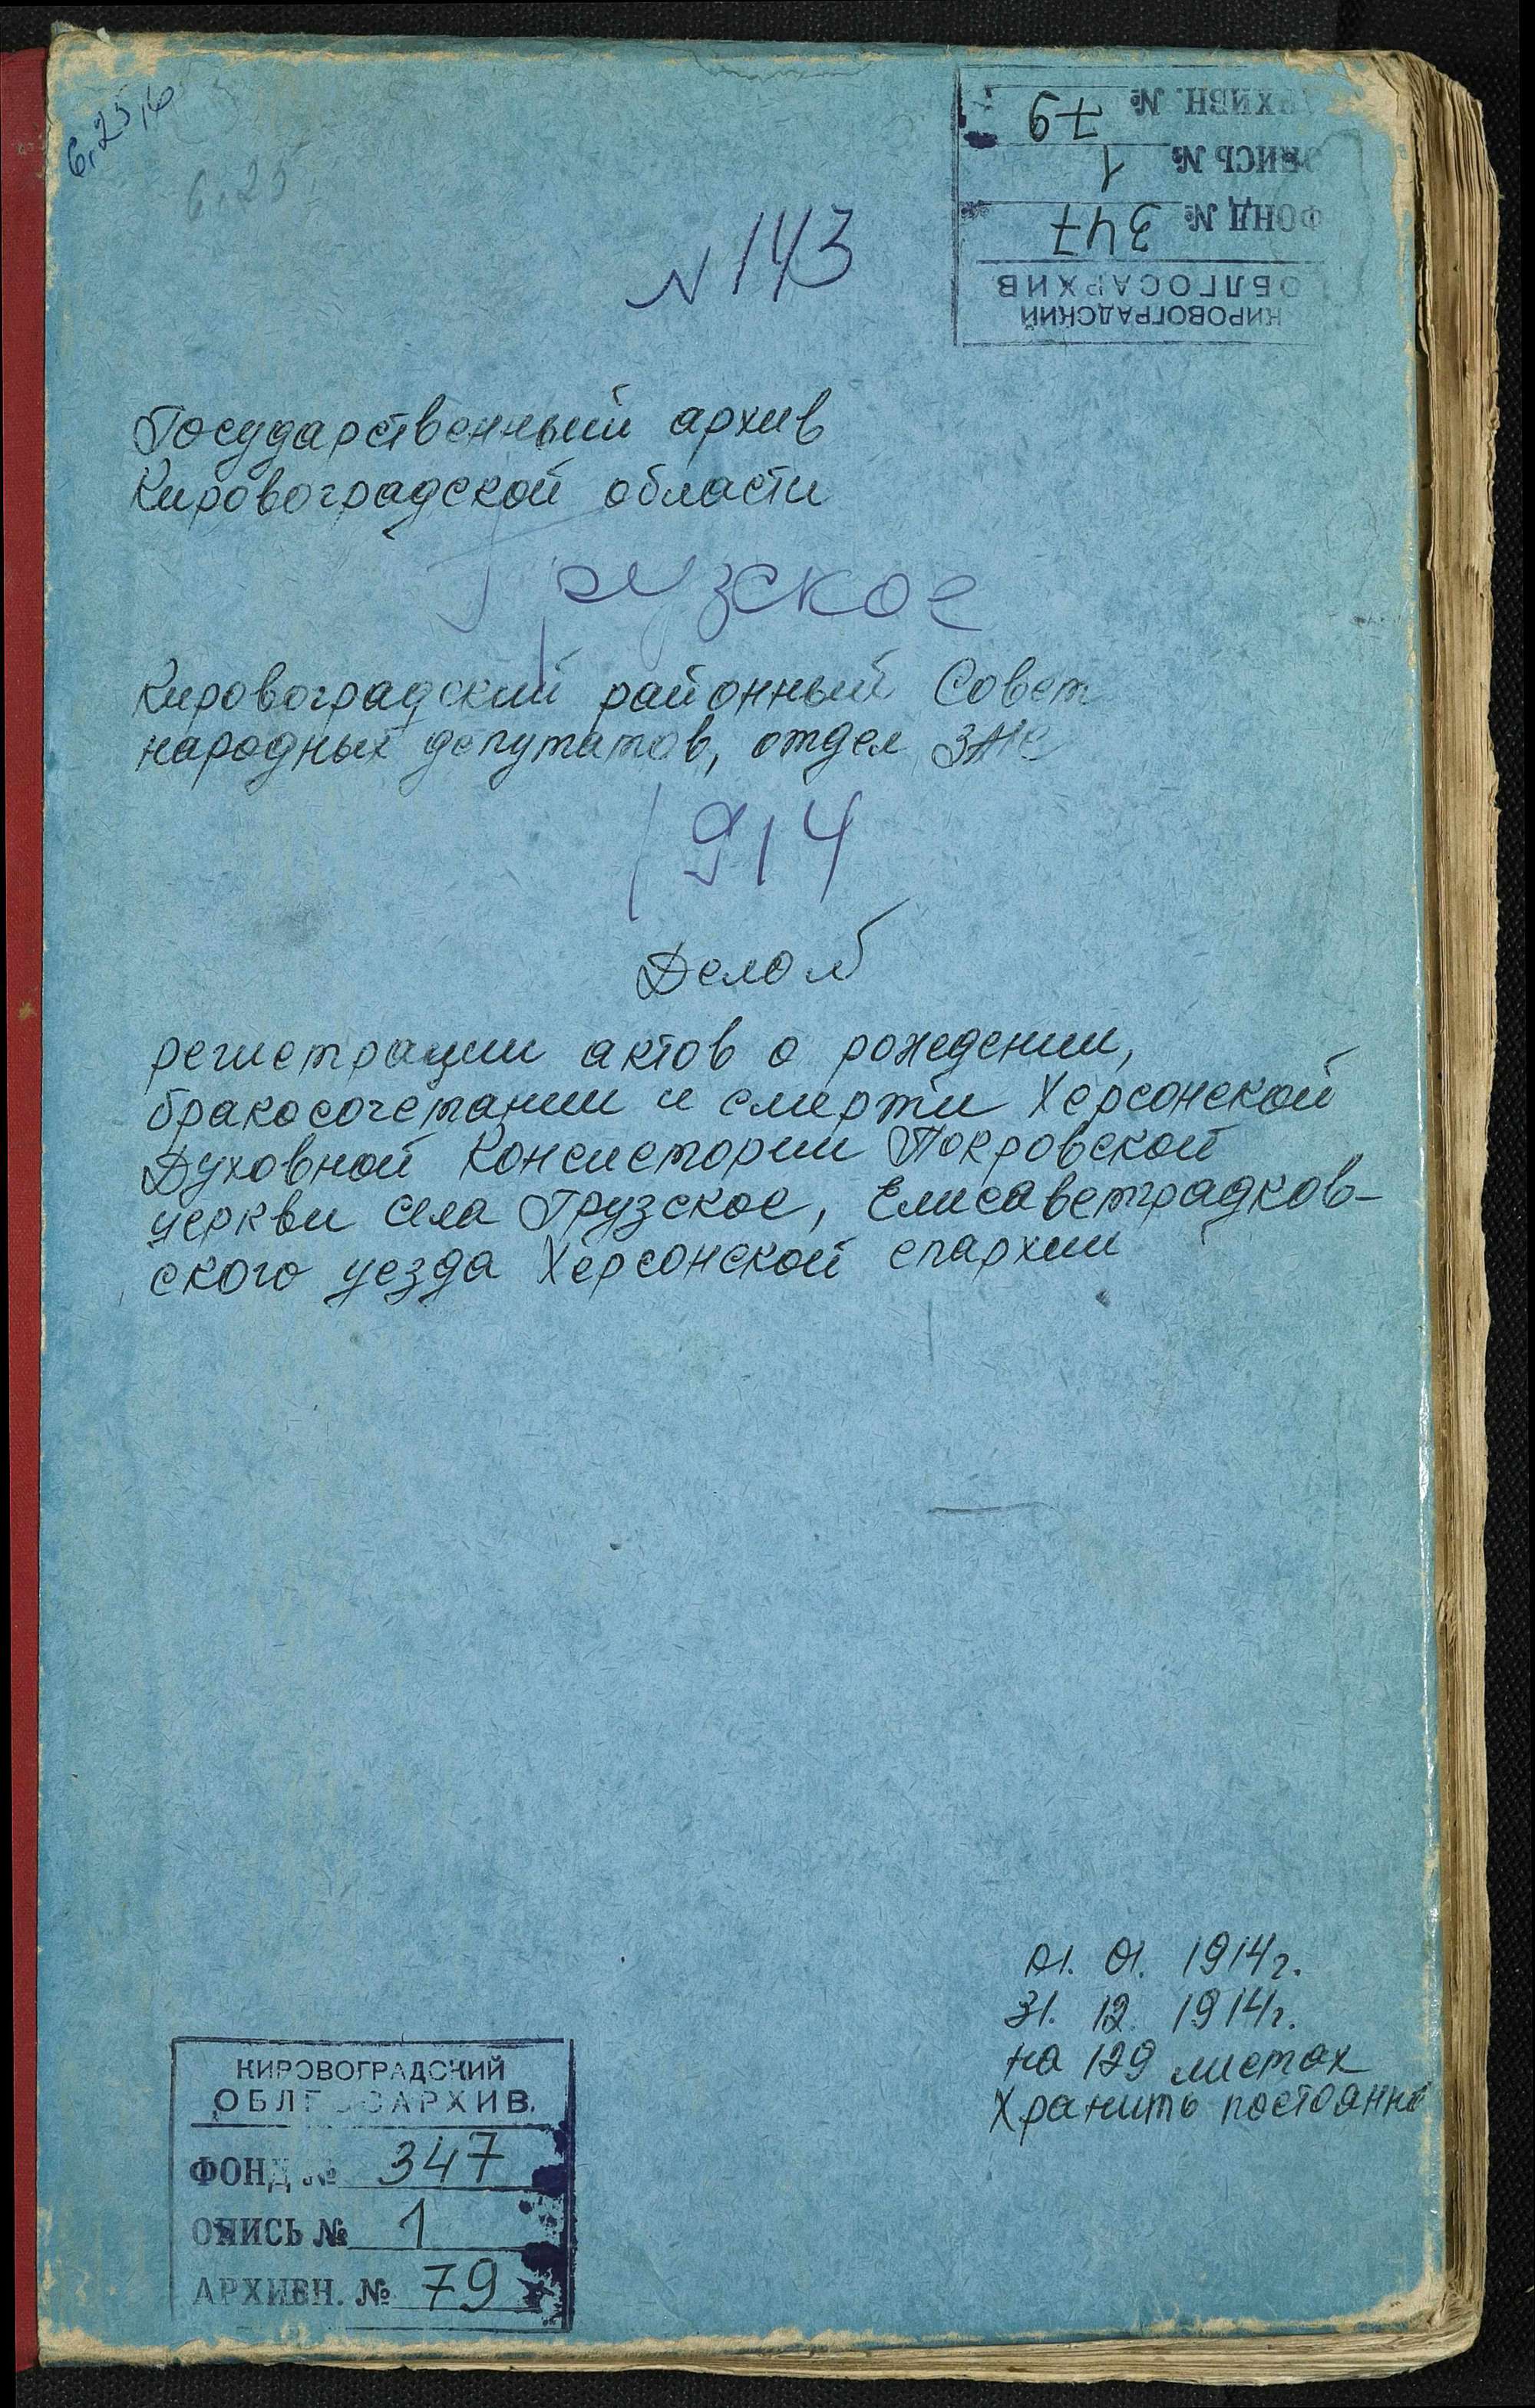 6,25
6,25
АРХИВН. № 79
ОПИСЬ № 1
ФОНД № 347
КИРОВОГРАДСКИЙ
ОБЛГОСАРХИВ
N 143
Государственный архив
Кировоградской области
Грузское
Кировоградский районный Совет
народных депутатов, отдел ЗАГС
1914
Дело №
регистрации актов о рождении,
бракосочетании и смерти Херсонской
Духовной Консистории Покровской
церкви села Грузское, Елисаветградков-
ского уезда Херсонской епархии
01. 01. 1914г.
31. 12. 1914г.
на 129 листах
Хранить постоянно
КИРОВОГРАДСКИЙ
ОБЛГОСАРХИВ.
ФОНД № 347
ОПИСЬ № 1
АРХИВН. № 79